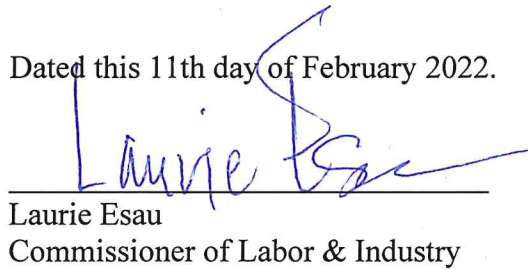 Dated this 11th day of February 2022.
Laurie Esau
Laurie Esau
Commissioner of Labor & Industry